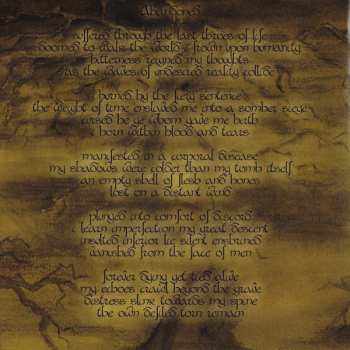 Abandoned
suffered through the last throes of life
doomed to walk the world & frown upon humanity
bitterness reigned my thoughts
as the waves of undesired reality collide
by the fiery sentence
the weight of time enslaved me into a somber siege
cursed be ye whom gave me birth
born within blood and tears
manifested in a corporal disease
my shadows were colder than my tomb itself
an empty shell of flesh and bones
lost on a distant wind
plunged into comfort of discord
learn imperfection my great descent
inferior lie silent enshrined
vanished from the face of men
forever dying yet still alive
my echoes crawl beyond the grave
distress slime towards my spine
the own defiled torn remain